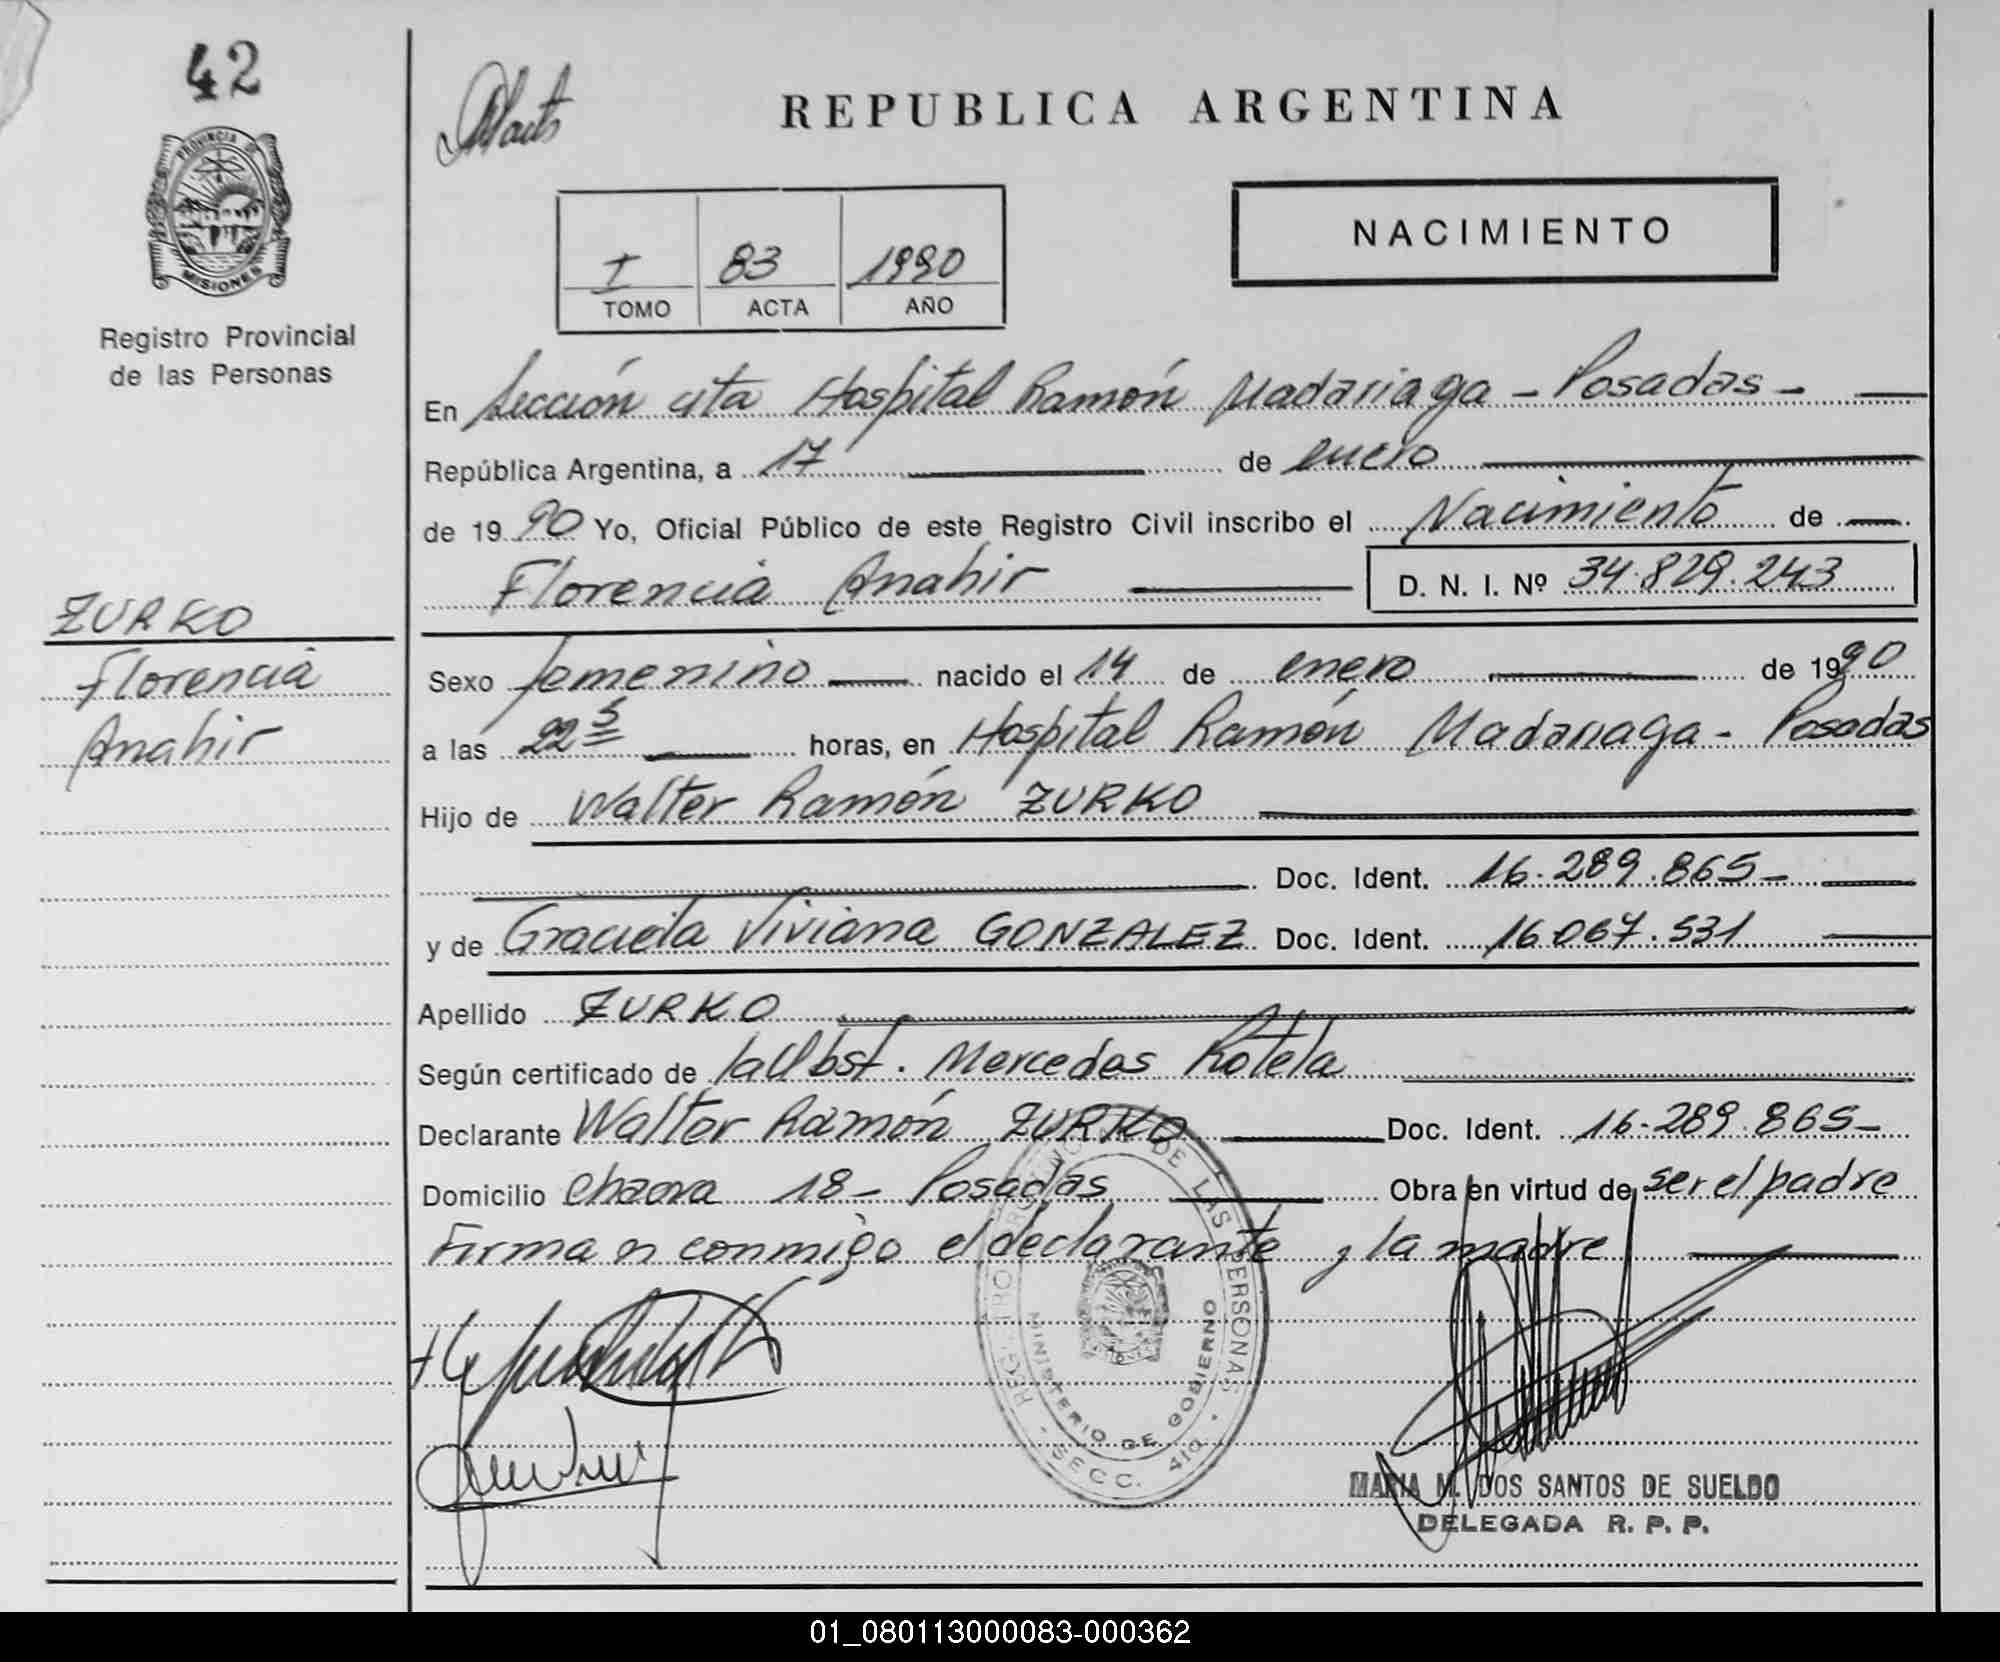 42
PROVINCIA DE
MISIONES
Registro Provincial
de las Personas
REPUBLICA ARGENTINA
NACIMIENTO
I 83 1990
TOMO ACTA AÑO
En Sección 4ta Hospital Ramón Madariaga - Posadas -
República Argentina, a 17 de enero
de 1990 Yo, Oficial Público de este Registro Civil inscribo el Nacimiento de
Florencia Anahir D. N. I. Nº 34.829.243
ZURKO
Florencia
Anahir
Sexo femenino nacido el 14 de enero de 1990
a las 22 5 horas, en Hospital Ramón Madariaga - Posadas
Hijo de Walter Ramón ZURKO
Doc. Ident. 16.289.865-
y de Graciela Viviana GONZALEZ Doc. Ident. 16.067.531
Apellido ZURKO
Según certificado de la Obst. Mercedes Rotela
Declarante Walter Ramón ZURKO Doc. Ident. 16.289.865-
Domicilio 18- Posadas Obra en virtud de ser el padre
Firman conmigo el declarante y la madre
REGISTRO PROVINCIAL DE LAS PERSONAS
MINISTERIO DE GOBIERNO
- SECC. 4ta. -
MARIA M. DOS SANTOS DE SUELDO
DELEGADA R. P. P.
01_080113000083-000362